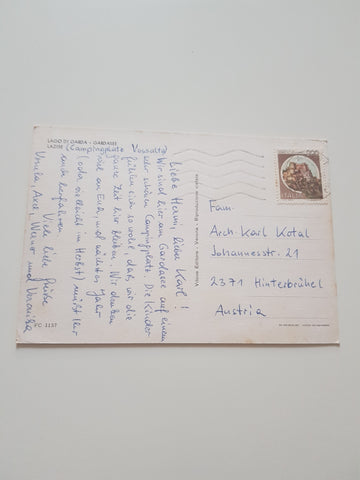 LAGO DI GARDA - GARDASEE
LAZISE
(Campingplatz Vossalta)
Liebe Hermi, liebe Karl!
Wir sind hier am Gardasee auf einem
sehr schönen Campingplatz. Die Kinder
fühlen sich so wohl, daß wir die
ganze Zeit hier bleiben. Wir denken
viel an Euch, und nächstes Jahr
(oder vielleicht im Herbst) müßt Ihr
auch herfahren.
Viele liebe Grüße
Ursula, Axel, Werner und Veronika
1157
Fam.
Arch. Karl Kotal
Johannesstr. 21
2371 Hinterbrühel
Austria